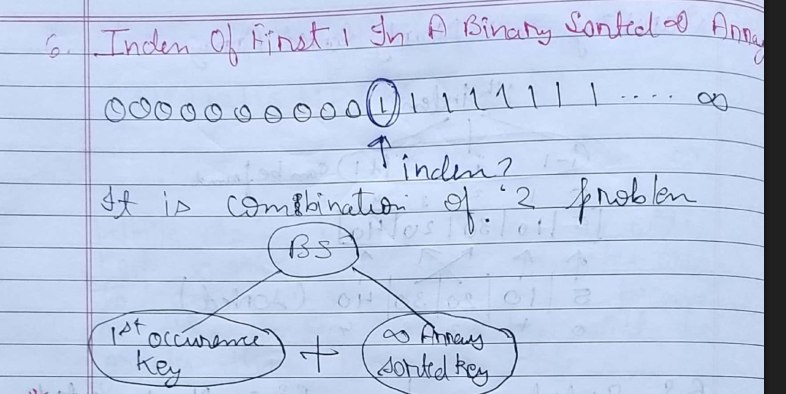 6. Index Of First 1 In A Binary Sorted ∞ Array
0 0 0 0 0 0 0 0 0 0 0 1 1 1 1 1 1 1 1 .... ∞
↑ index?
It is combination of '2 problem
BS
1st occurence key + ∞ Array sorted key